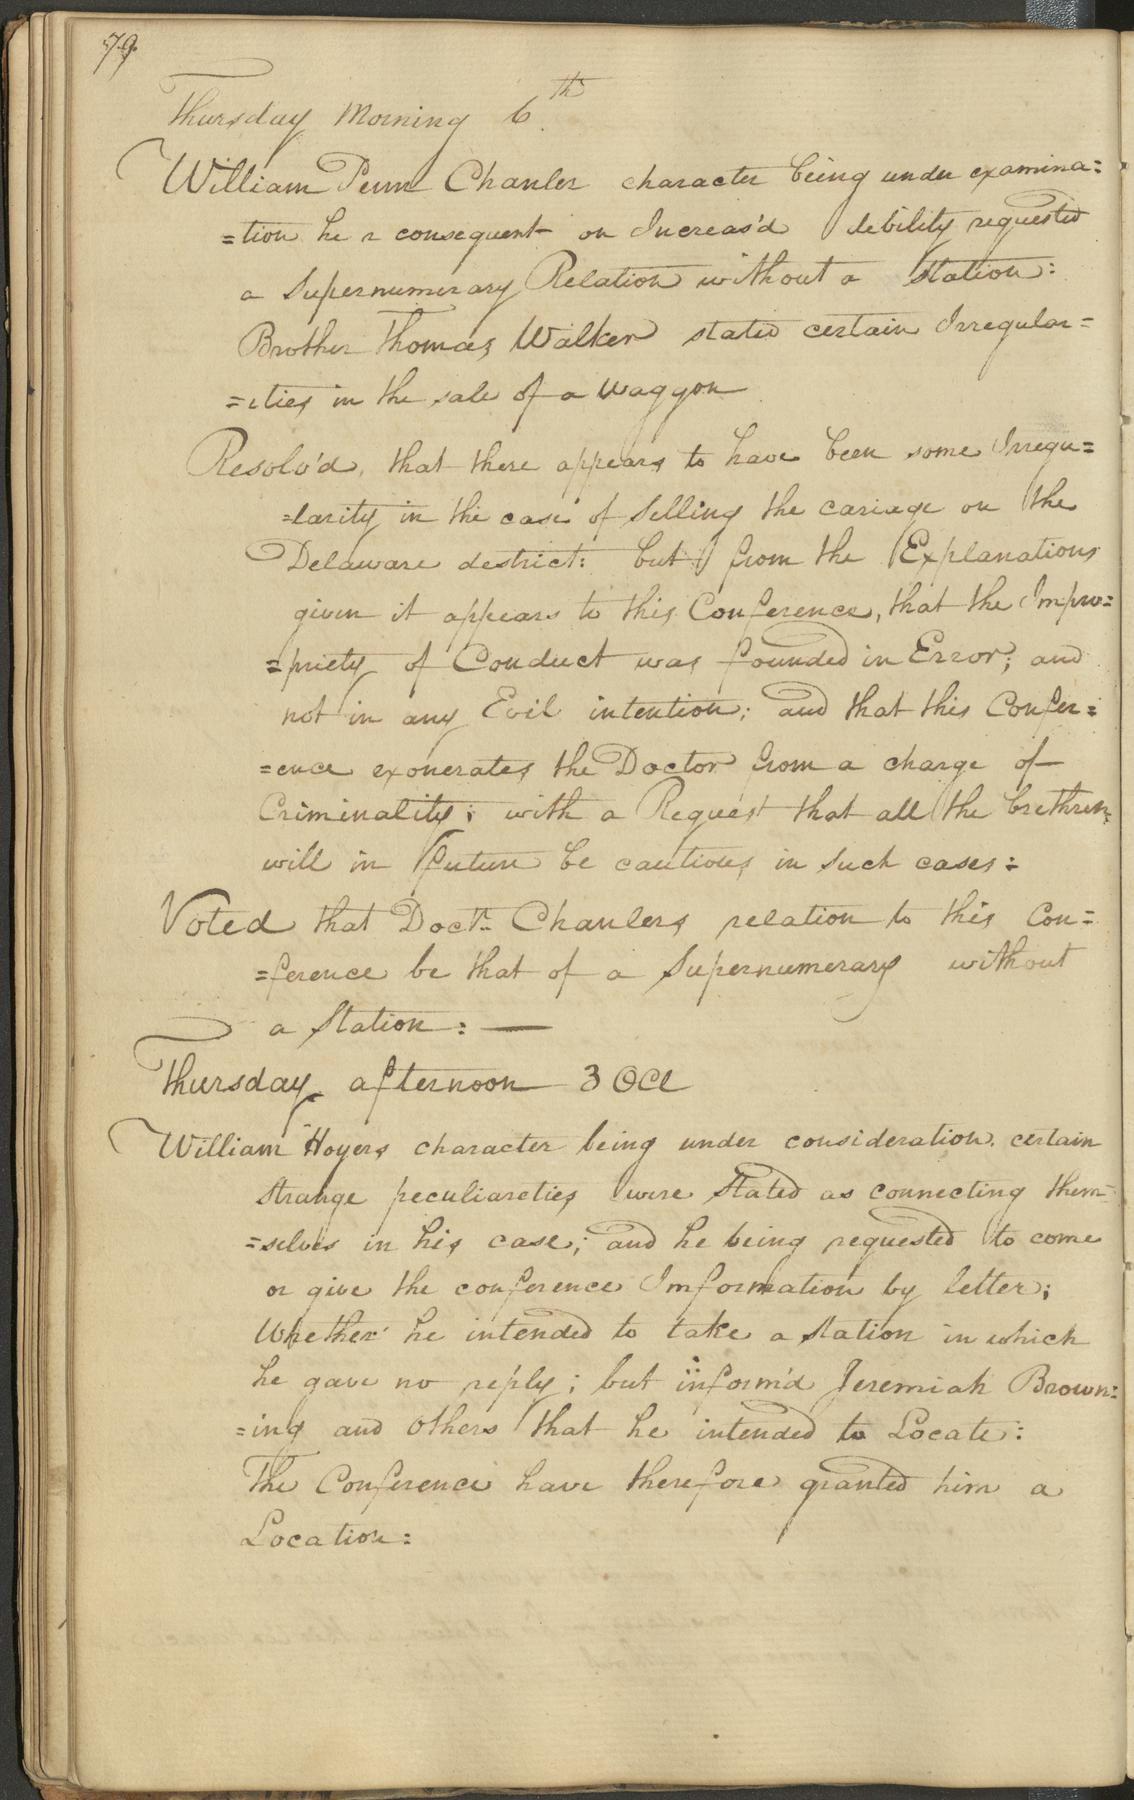 79
Thursday Morning 6th
William Penn Chanler character being under examina=
=tion he r consequent on Increas'd debility requested
a Supernumerary Relation without a Station:
Brother Thomas Walker stated certain Irregular=
=ities in the sale of a Waggon
Resolv'd, that there appears to have been some Irregu=
=larity in the case of Selling the cariage on the
Delaware destrict: but from the Explanations
given it appears to this Conference, that the Impro=
=priety of Conduct was founded in Error; and
not in any Evil intention; and that this Confer=
=ence exonerates the Doctor from a charge of
Criminality; with a Request that all the brethren
will in future be cautious in such cases:
Voted that Doctr. Chanlers relation to this Con=
=ference be that of a Supernumerary without
a Station: —
Thursday afternoon 3 OCl
William Hoyers character being under consideration. certain
strange peculiareties were Stated as connecting them=
=selves in his case; and he being requested to come
or give the conference Imformation by letter;
Whether he intended to take a station in which
he gave no reply; but inform'd Jeremiah Brown=
=ing and others that he intended to Locate:
The Conference have therefore granted him a
Location: